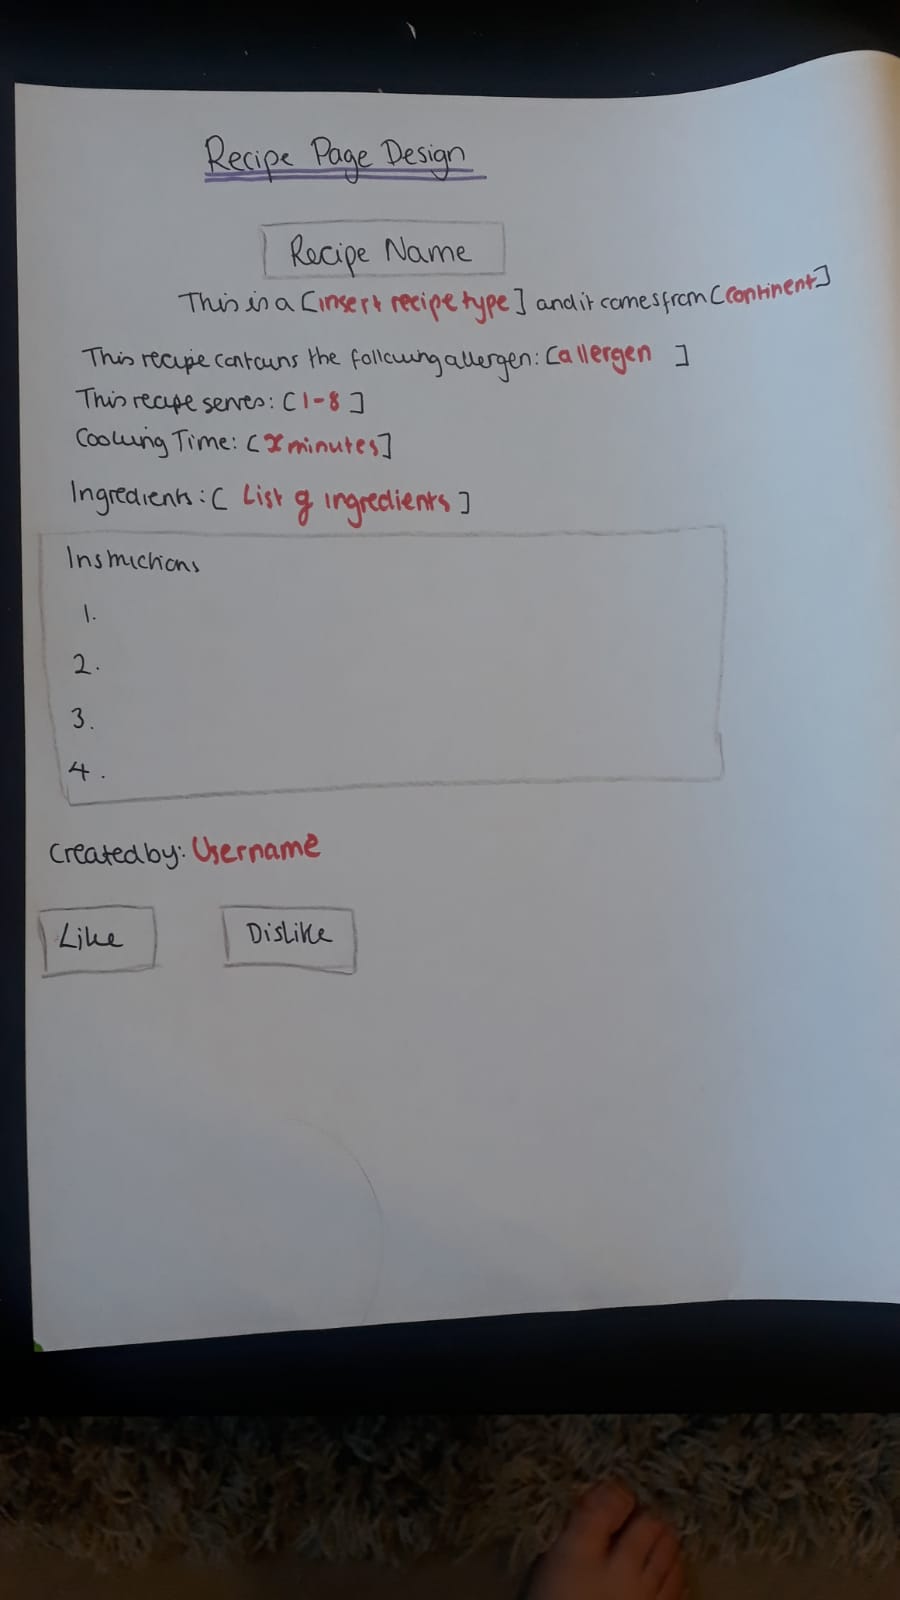 Recipe Page Design
Recipe Name
This is a [insert recipe type] and it comes from [continent]
This recipe contains the following allergen: [allergen ]
This recipe serves: [1-8]
Cooking Time: [x minutes]
Ingredients: [List of ingredients]
Instructions
1.
2.
3.
4.
Created by: Username
Like Dislike